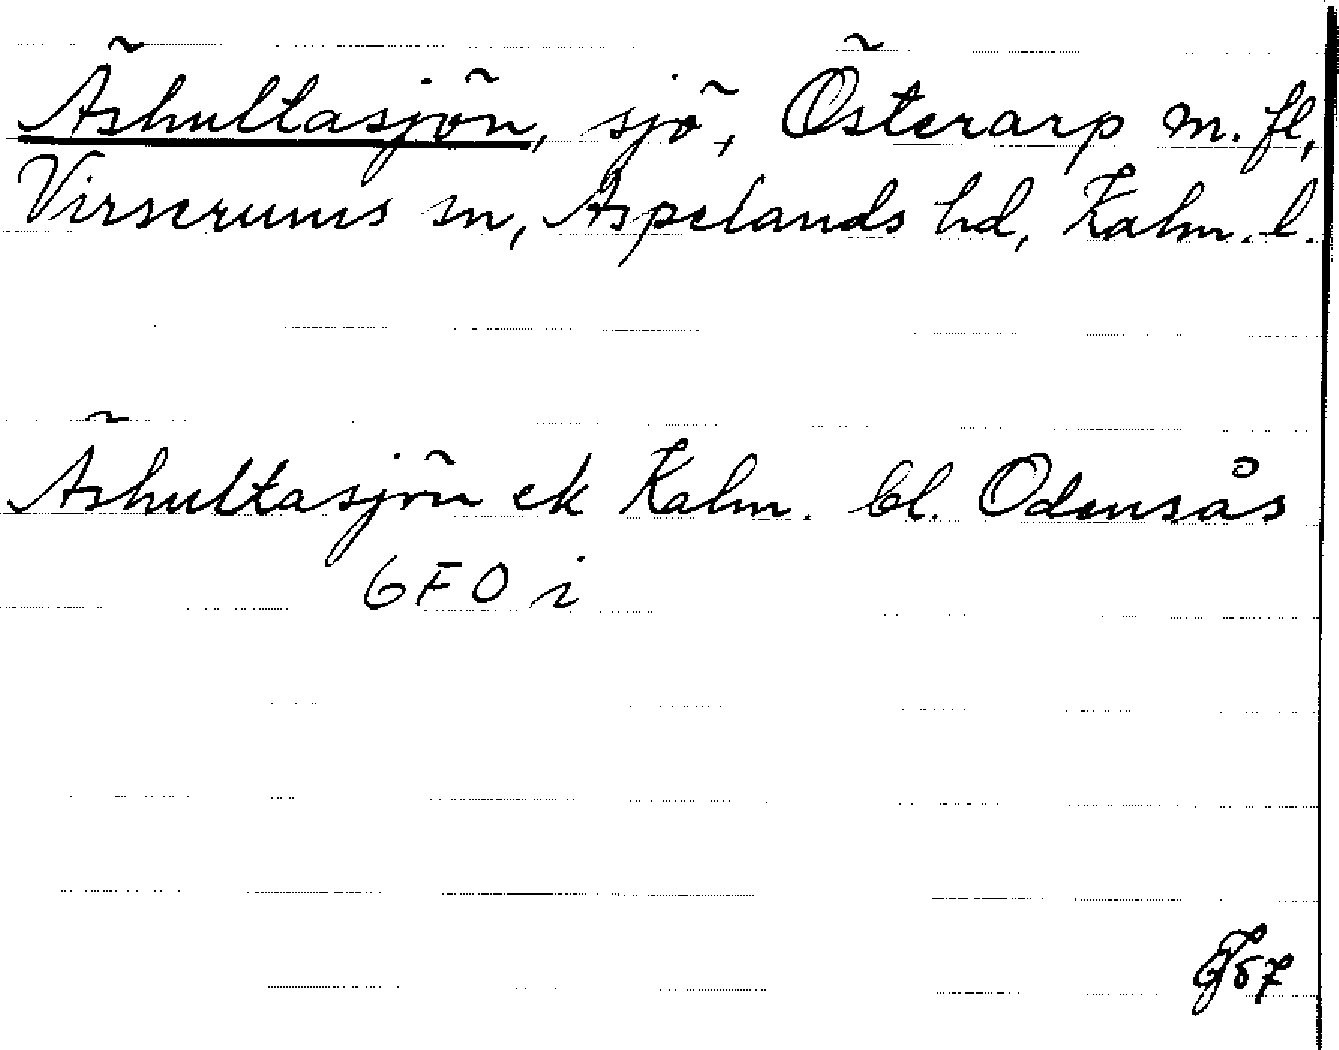 Äshultasjön, sjö, Österarp m. fl,
Virserums sn, Aspelands hd, Kalm. l.
Äshultasjön ek Kalm. bl. Odensås
6F0i